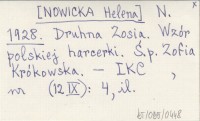 [NOWICKA Helena] N.
1928. Druhna Zosia. Wzór
polskiej harcerki. Ś.p. Zofia
Krókowska. — IKC ,
nr (12 IX): 4, il.